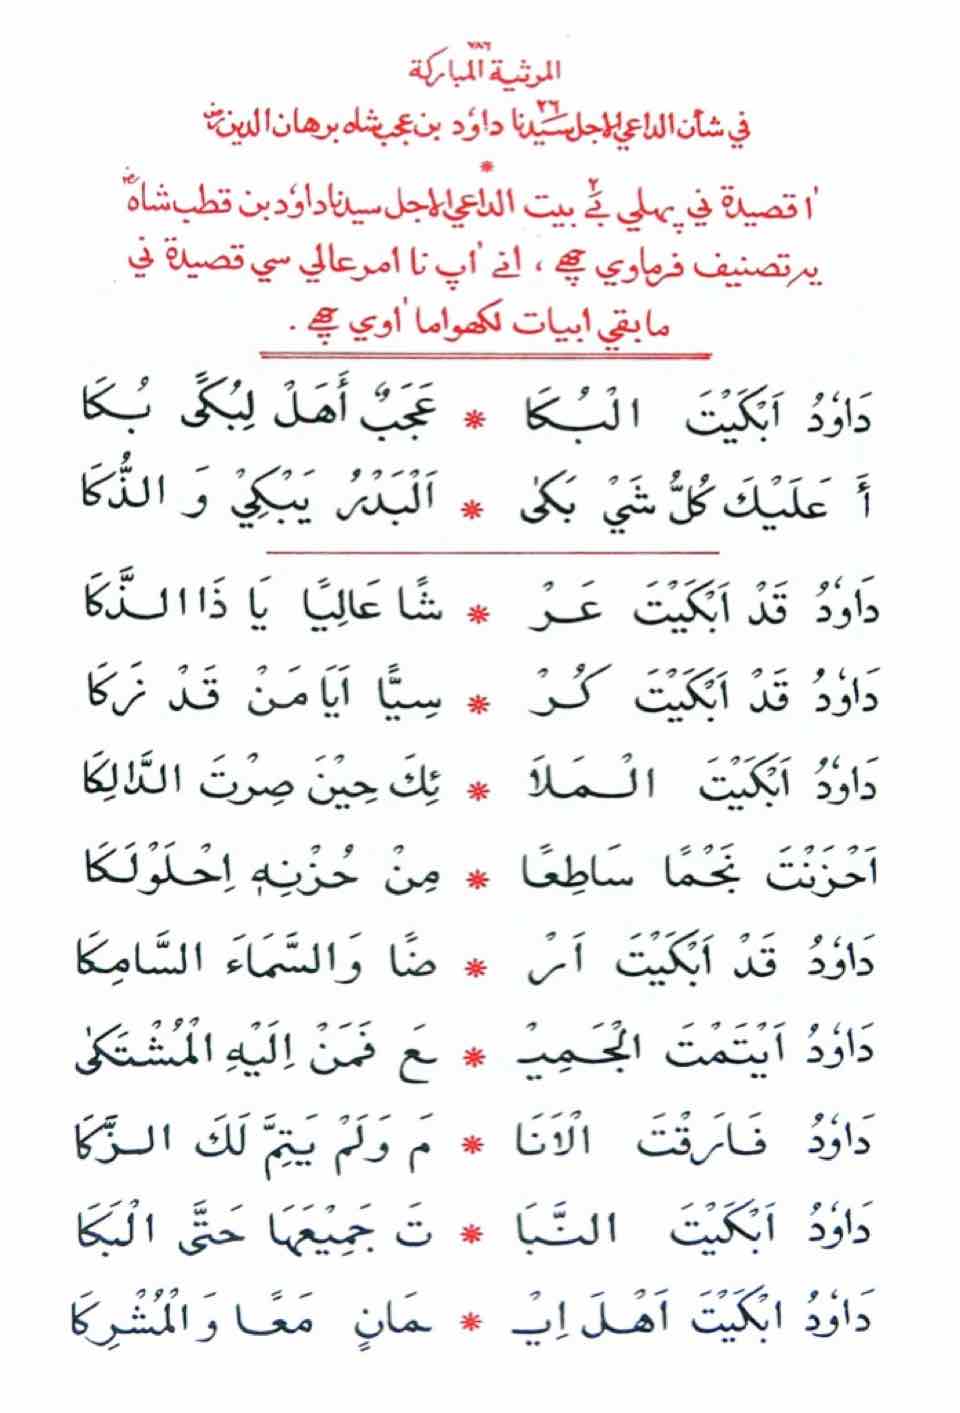 ٧٨٦
المرثية المباركة
في شأن الداعي الاجل سيدنا ٢٦ داوٗد بن عجب شاه برهان الدين رض
*
اٰ قصيدة ني پهلي ٢ بيت الداعي الاجل سيدنا داوٗد بن قطب شاه رض
يهـ تصنيف فرماوي چهے ، انے اٰپ نا امر عالي سي قصيدة ني
ما بقي ابيات لكهواما اٰوي چهے .
دَاوٗدُ اَبْكَيْتَ الْبُكَا * عَجَبٌ أَهَلْ لِبُكًى بُكَا
أَ عَلَيْكَ كُلُّ شَيْ بَكٰى * اَلْبَدْرُ يَبْكِيْ وَ الذُّكَا
دَاوٗدُ قَدْ اَبْكَيْتَ عَرْ * شًا عَالِيًا يَا ذَا الذَّكَا
دَاوٗدُ قَدْ اَبْكَيْتَ كُرْ * سِيًّا اَيَا مَنْ قَدْ زَكَا
دَاوٗدُ اَبْكَيْتَ الْمَلاَ * ئِكَ حِيْنَ صِرْتَ الدَّالِكَا
اَحْزَنْتَ نَجْمًا سَاطِعًا * مِنْ حُزْنِهٖ اِحْلَوْلَكَا
دَاوٗدُ قَدْ اَبْكَيْتَ اَرْ * ضًا وَالسَّمَاءَ السَّامِكَا
دَاوٗدُ اَيْتَمْتَ الْجَمِيْـ * ـعَ فَمَنْ اِلَيْهِ الْمُشْتَكٰى
دَاوٗدُ فَارَقْتَ الْاَنَا * مَ وَلَمْ يَتِمَّ لَكَ الزَّكَا
دَاوٗدُ اَبْكَيْتَ النَّبَا * تَ جَمِيْعَهَا حَتَّى الْبَكَا
دَاوٗدُ ابْكَيْتَ اَهْلَ اِيْـ * ـمَانٍ مَعًا وَالْمُشْرِكَا